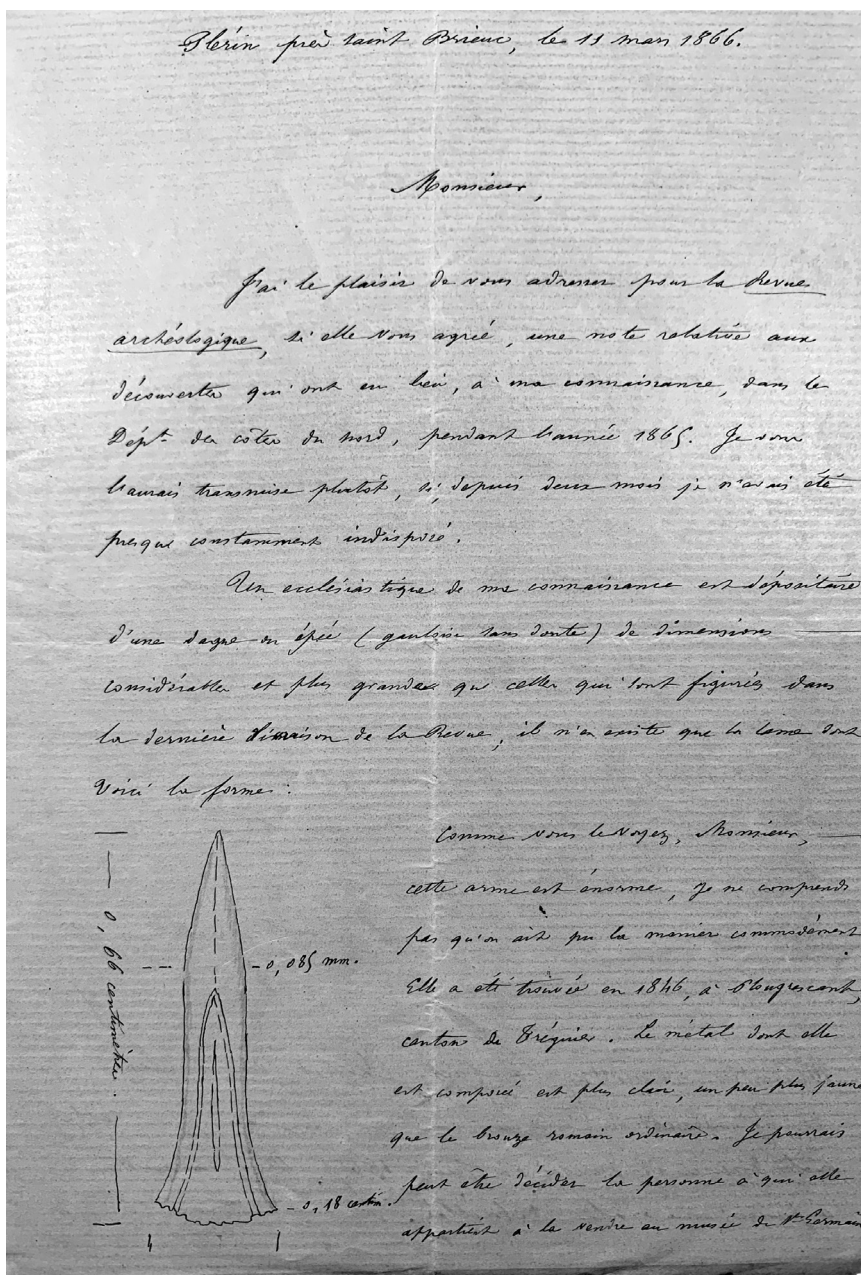 Plérin près saint Brieuc, le 11 mars 1866.
Monsieur,
J'ai le plaisir de vous adresser pour la Revue
archéologique, si elle vous agrée, une note relative aux
découvertes qui ont eu lieu, à ma connaissance, dans le
Dépt. des côtes du nord, pendant l'année 1865. Je vous
l'aurais transmise plutôt, si, depuis deux mois je n'avais été
presque constamment indisposé.
Un ecclésiastique de ma connaissance est dépositaire
d'une dague ou épée (gauloise sans doute) de dimensions
considérables et plus grandes que celles qui sont figurées dans
la dernière livraison de la Revue, il n'en existe que la lame dont
voici la forme :
0,66 centimètres.
0,085 mm.
0,18 centim.
Comme vous le voyez, Monsieur,
cette arme est énorme, je ne comprends
pas qu'on ait pu la manier commodément
Elle a été trouvée en 1846, à Plougrescant,
canton de Tréguier. Le métal dont elle
est composé est plus clair, un peu plus jaune
que le bronze romain ordinaire. Je pourrais
peut être décider la personne à qui elle
appartient à la vendre au musée de St Germain